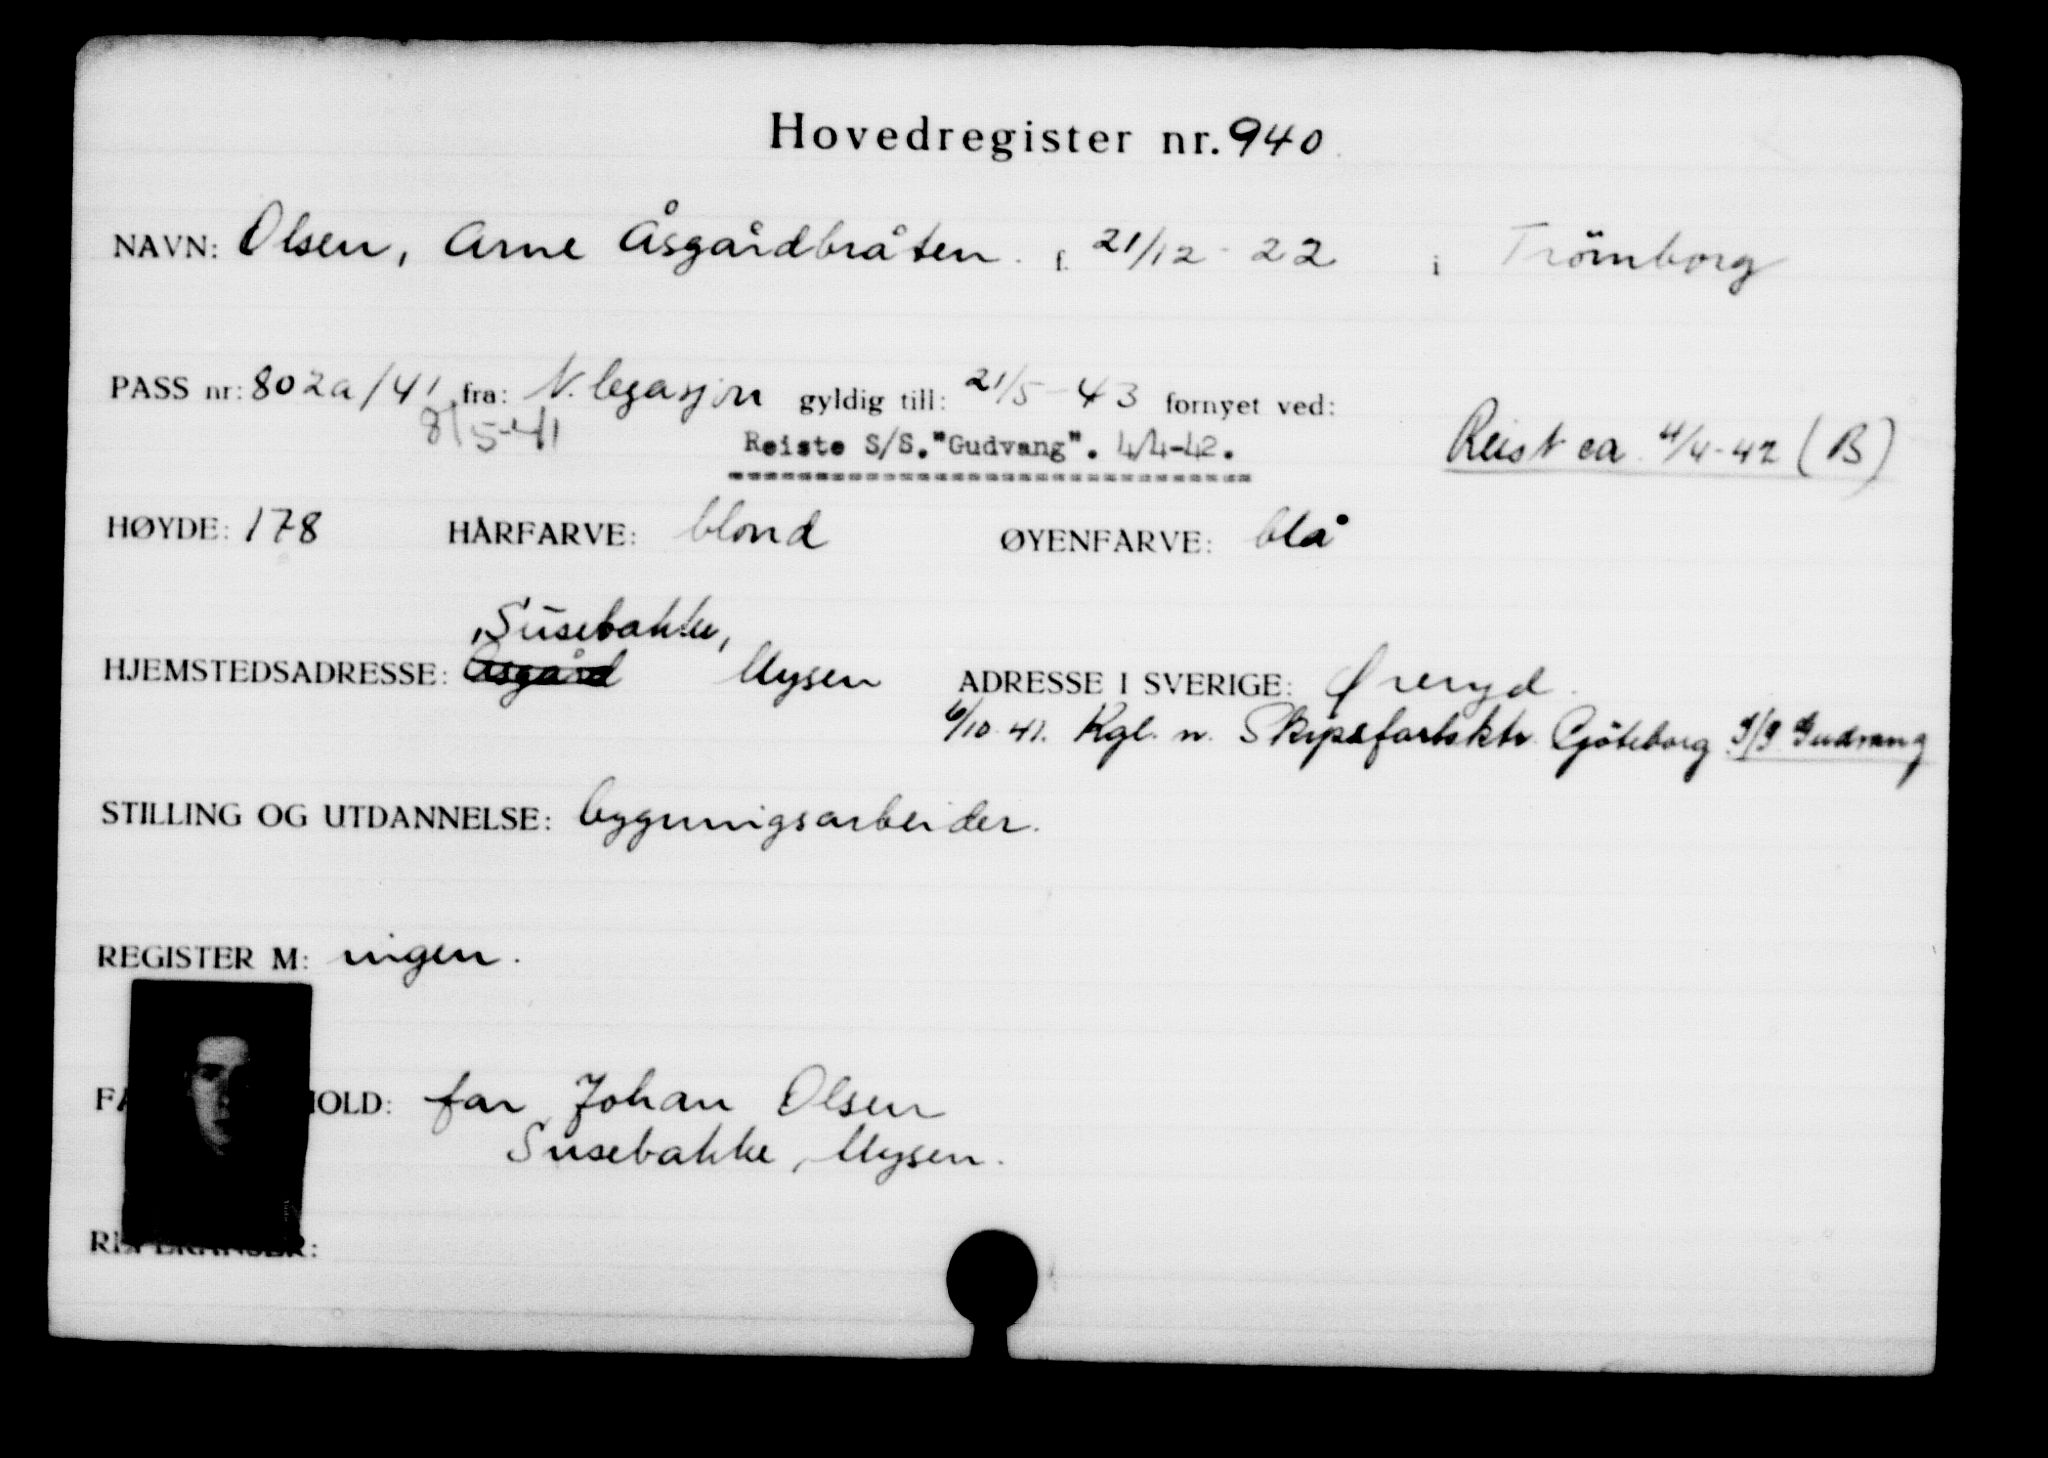 Hovedregister nr. 940
NAVN: Olsen, Arne Åsgårdbråten. f. 21/12-22 i Trömborg
PASS nr: 802a/41 fra: N. legasjon gyldig till: 21/5-43 fornyet ved:
8/5-41 Reiste S/S."Gudvang". 4/4-42. Reist ca 4/4-42 (B)
HØYDE: 178 HÅRFARVE: blond ØYENFARVE: blå
Susebakke,
HJEMSTEDSADRESSE: Åsgård Mysen ADRESSE I SVERIGE: Øreryd.
6/10 41. Kgl. n. Skipsfartsktr. Göteborg S/S Gudvang
STILLING OG UTDANNELSE: bygningsarbeider.
REGISTER M: ingen.
FA HOLD: far Johan Olsen
Susebakke, Mysen.
REFERANSER: